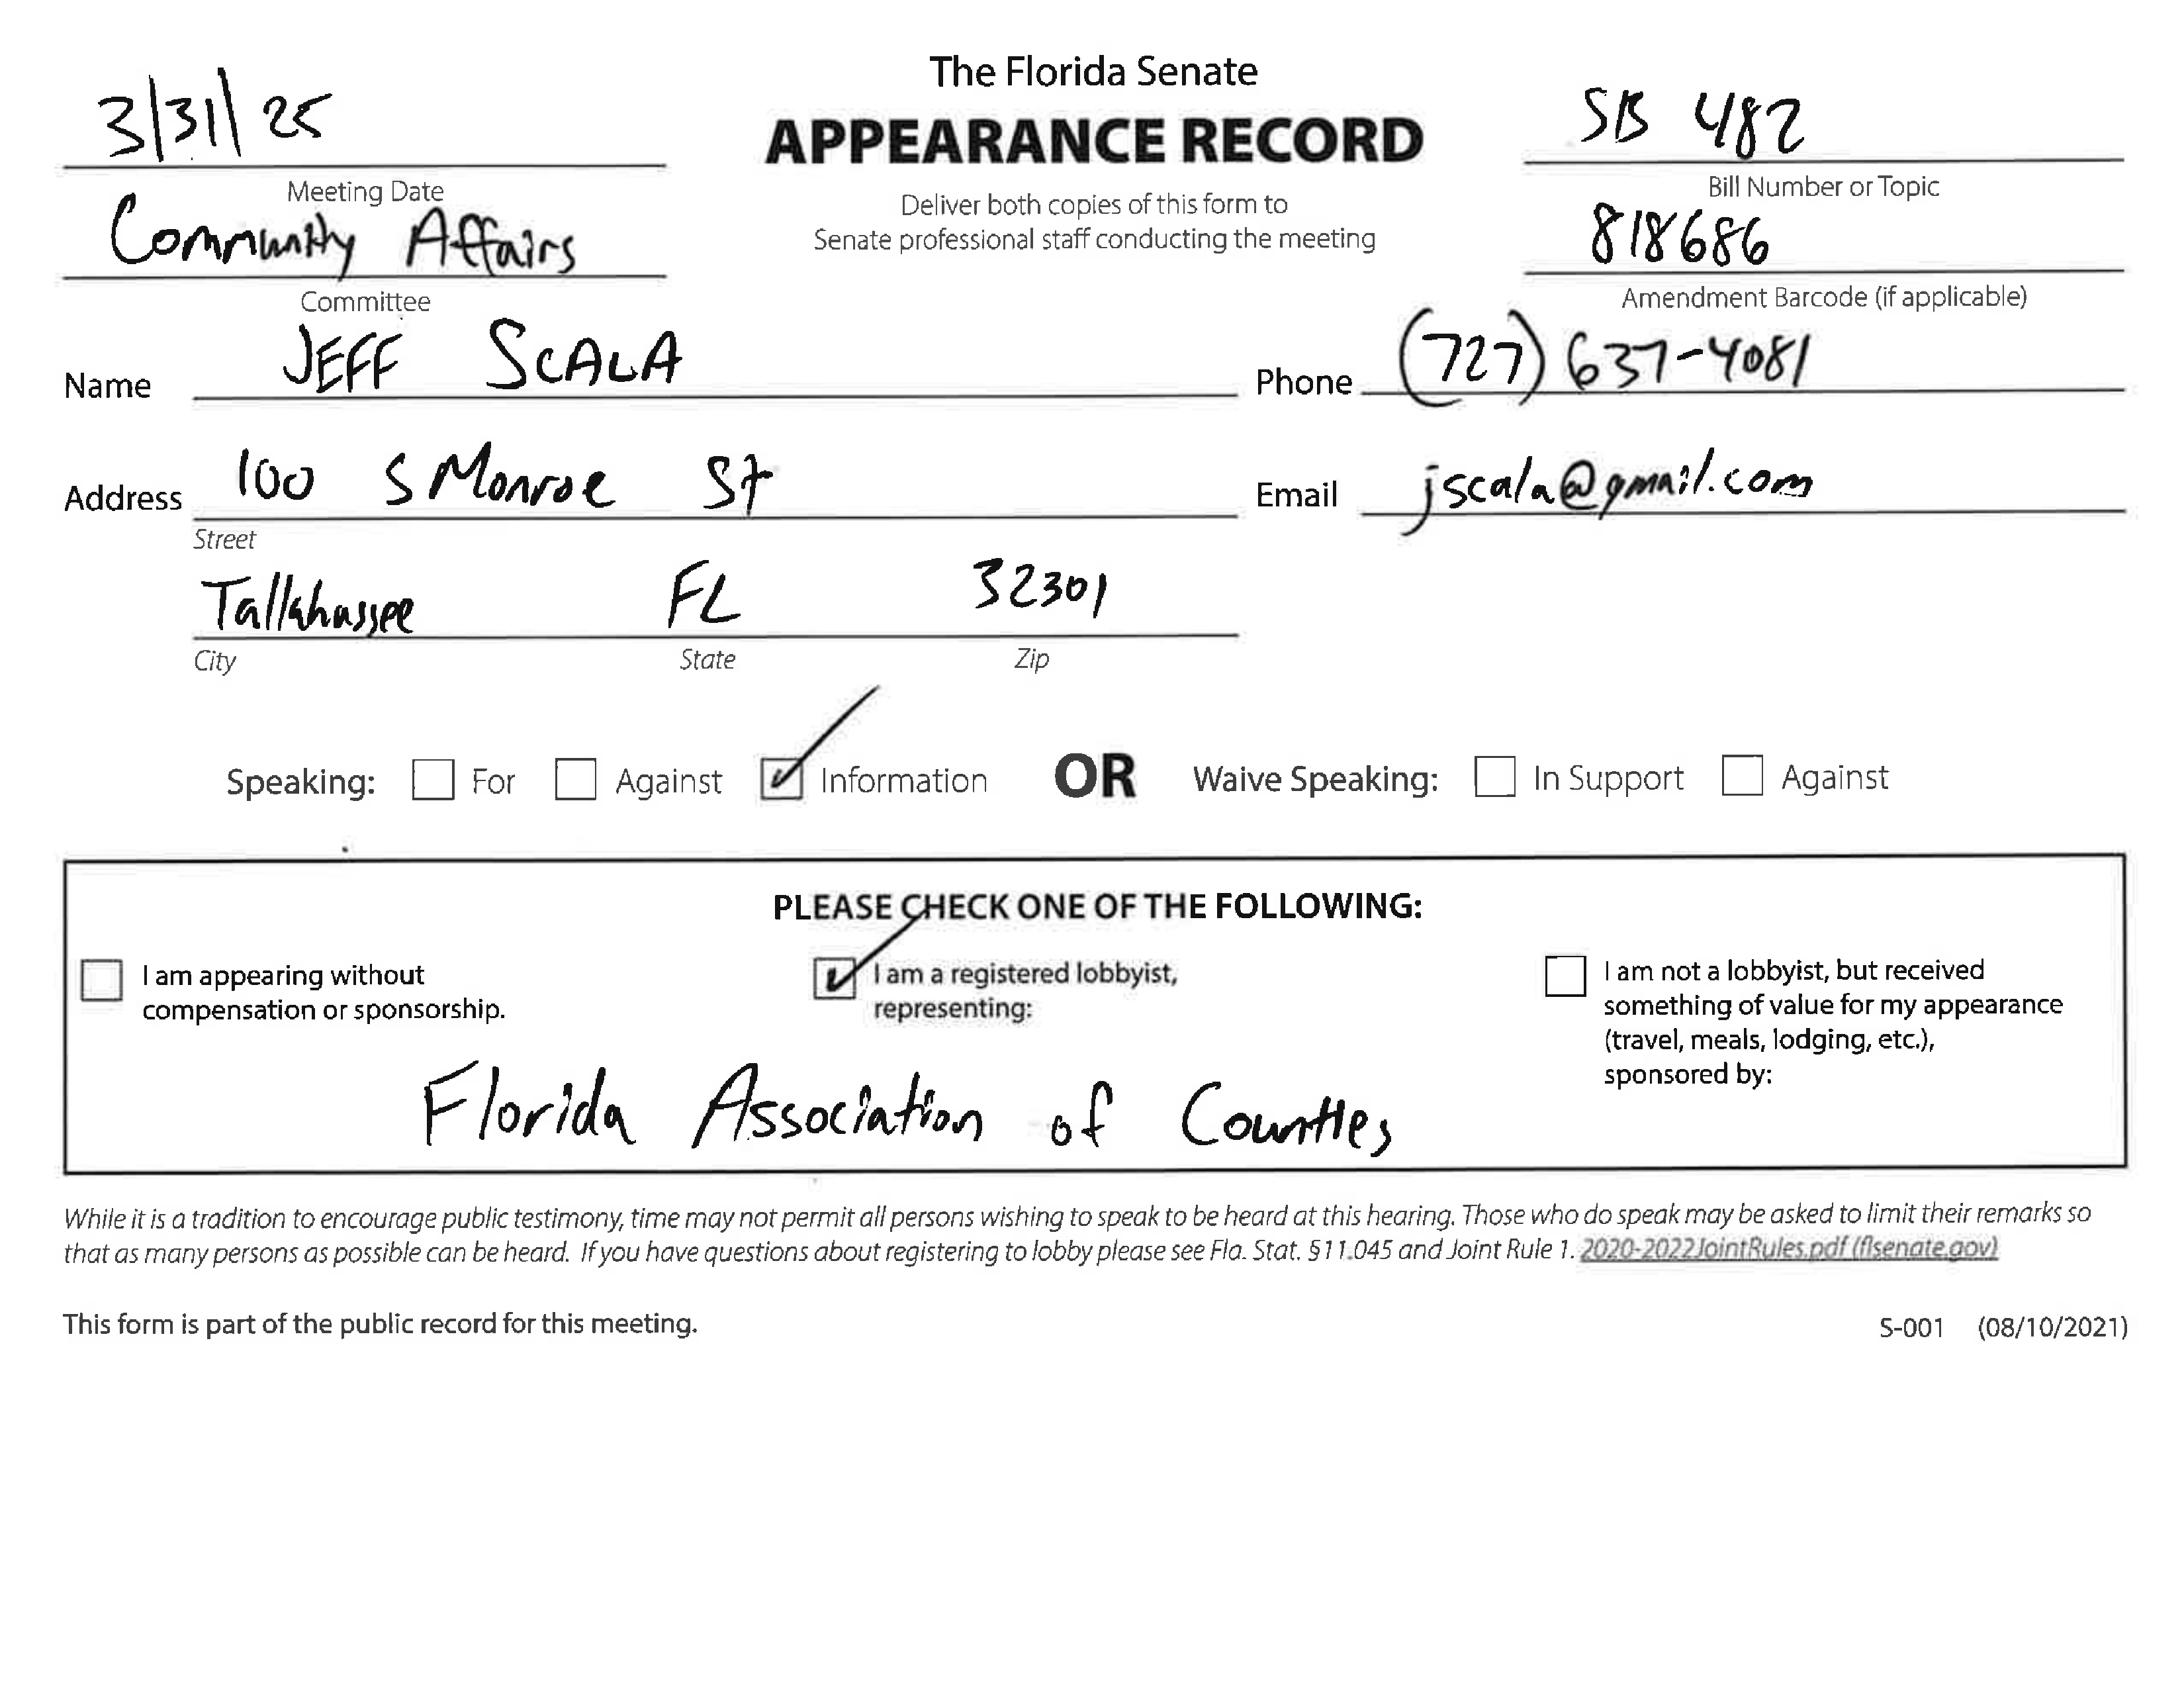 The Florida Senate
APPEARANCE RECORD
Deliver both copies of this form to
Senate professional staff conducting the meeting
3/31/25
Meeting Date
Community Affairs
Committee
SB 482
Bill Number or Topic
818686
Amendment Barcode (if applicable)
Name JEFF SCALA
Phone (727) 637-4081
Address 100 S Monroe St
Street
Email jscala@gmail.com
Tallahassee FL 32301
City State Zip
Speaking: For Against Information OR Waive Speaking: In Support Against
PLEASE CHECK ONE OF THE FOLLOWING:
I am appearing without
compensation or sponsorship.
I am a registered lobbyist,
representing:
I am not a lobbyist, but received
something of value for my appearance
(travel, meals, lodging, etc.),
sponsored by:
Florida Association of Counties
While it is a tradition to encourage public testimony, time may not permit all persons wishing to speak to be heard at this hearing. Those who do speak may be asked to limit their remarks so
that as many persons as possible can be heard. If you have questions about registering to lobby please see Fla. Stat. §11.045 and Joint Rule 1. 2020-2022JointRules.pdf (flsenate.gov)
This form is part of the public record for this meeting.
S-001 (08/10/2021)